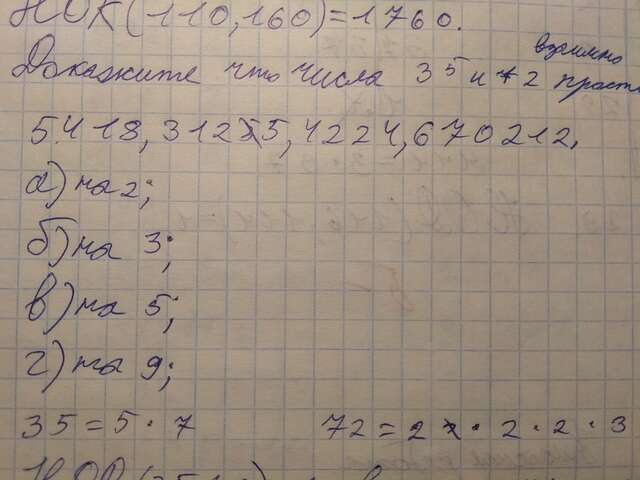 НОК(110,160)=1760.
Докажите что числа 35 и 72 взаимно прост
5418, 31255, 4224, 670212.
а) на 2;
б) на 3;
в) на 5;
г) на 9;
35 = 5 · 7 72 = 2 · 2 · 2 · 3